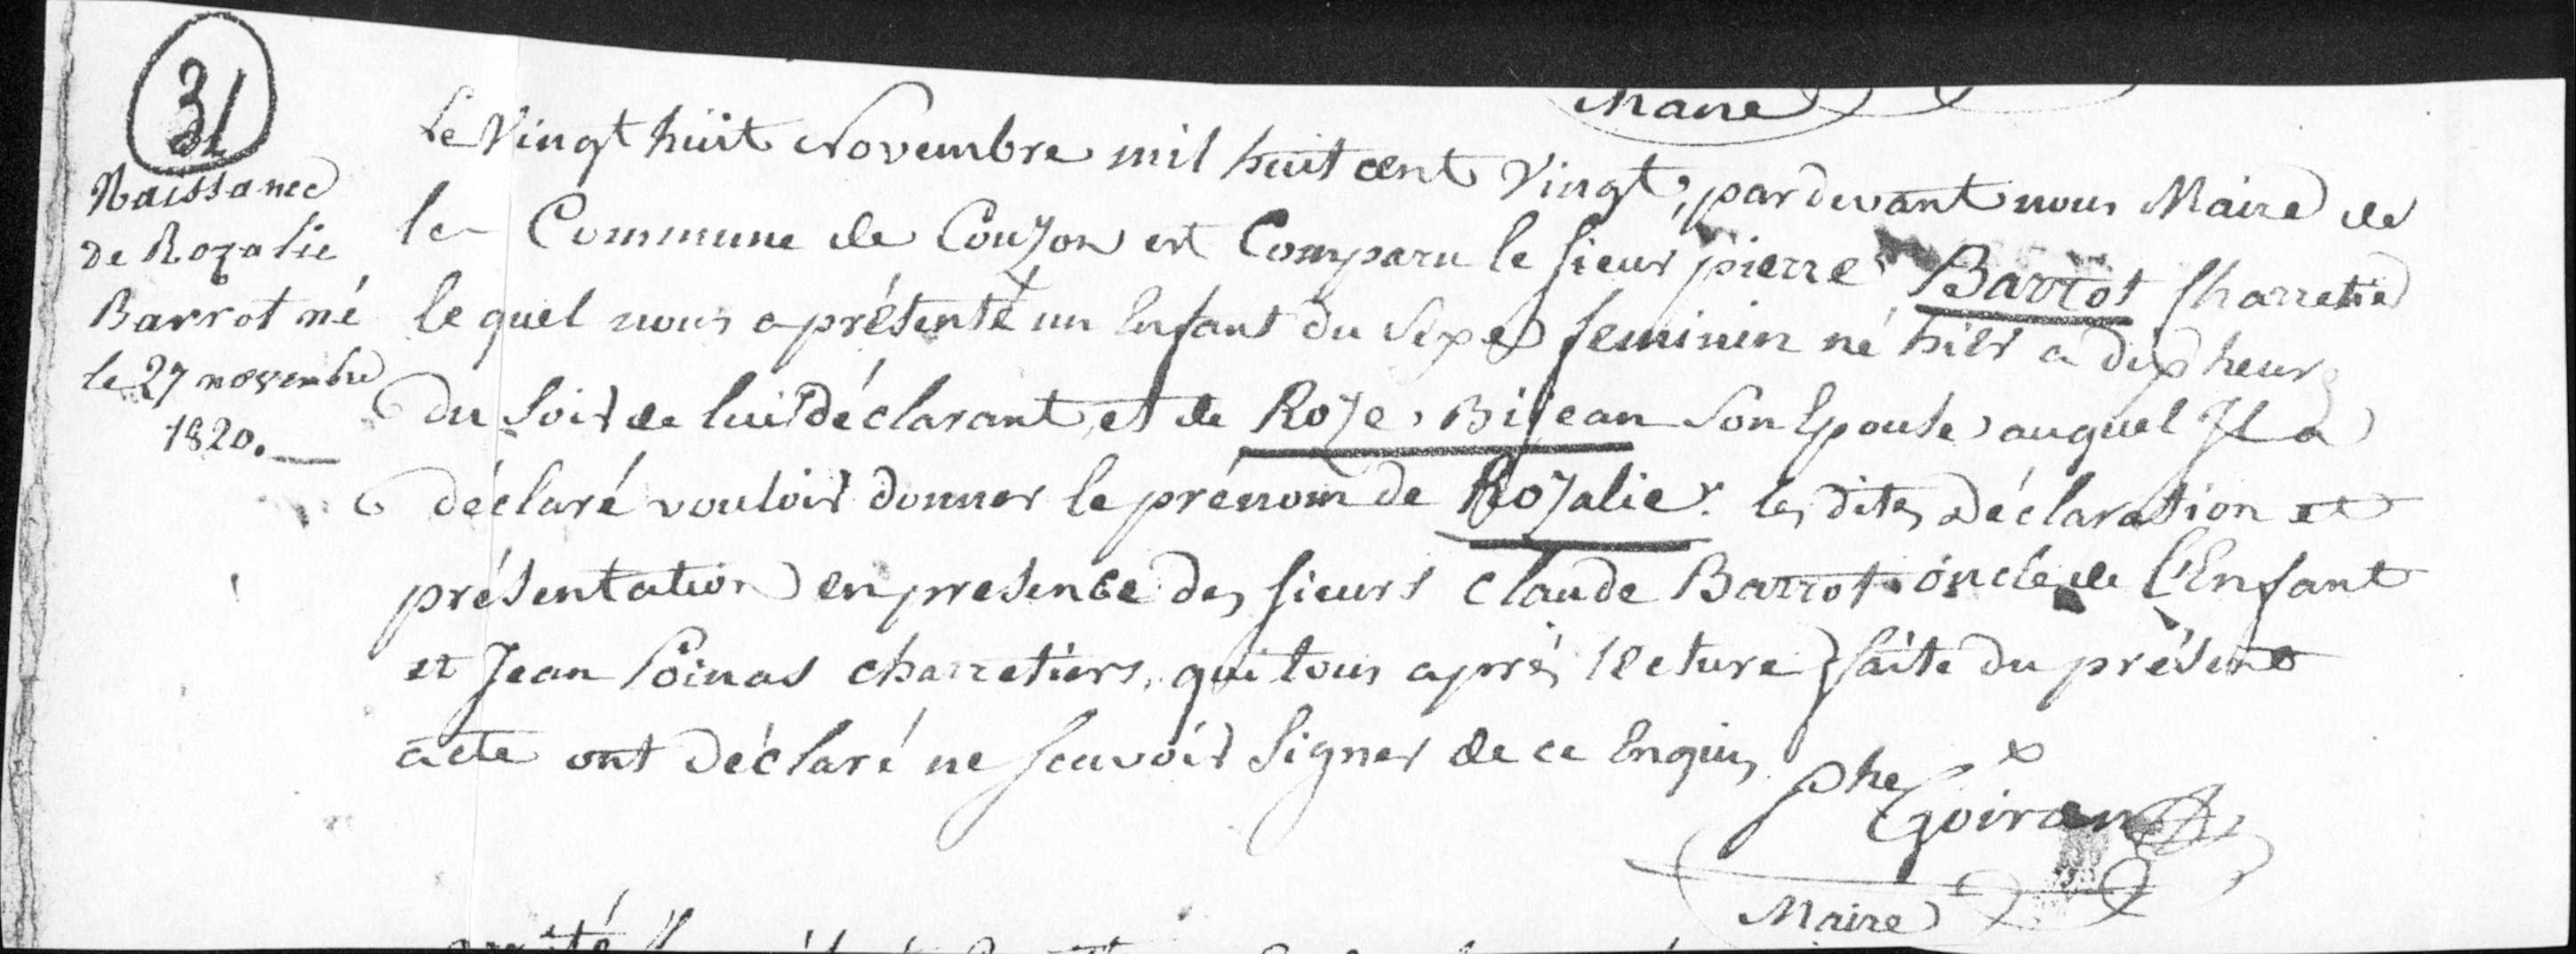 Maire
31
Naissance
de Rozalie
Barrot né
le 27 novembre
1820.
Le Vingt huit Novembre mil huit cent Vingt, pardevant nous Maire de
la Commune de Couzon est Comparu le sieur pierre Barrot Charretier
le quel nous a présenté un Enfant du Sexe feminin né hier a dix heures
du Soir de lui déclarant, et de Roze Bijean Son Epouse auquel Il a
déclaré vouloir donner le prénom de Rozalie. les dites Déclaration et
présentation en presence des sieurs Claude Barrot oncle de l'Enfant
et Jean Poinas charretiers, qui tous après lecture faite du présent
acte ont Déclaré ne scavoir Signer de ce Enquis
phe Goiran
Maire